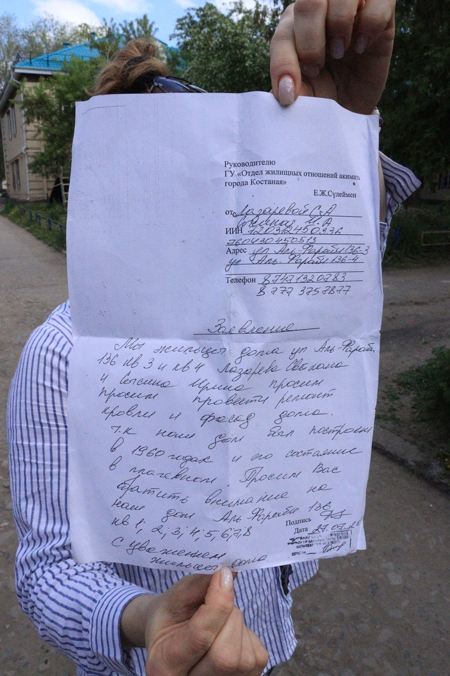 Руководителю
ГУ «Отдел жилищных отношений акимата
города Костаная»
Е.Ж.Сүлеймен
от Лазаревой С.А
ИИН
Адрес ул Аль-Фараби 136-3
ул Аль Фараби 136-4
Телефон
Заявление
Мы жильцы дома ул Аль Фараби
136 кв 3 и кв 4 Лазарева
и Ирина просим
просим провести ремонт
кровли и фасад дома.
т.к наш дом был построен
в 1960 годах и его состояние
в плачевном. Просим Вас
обратить внимание на
наш дом Аль Фараби 136
кв 1, 2, 3, 4, 5, 6, 7, 8
Подпись
Дата
С уважением
жильцы дома